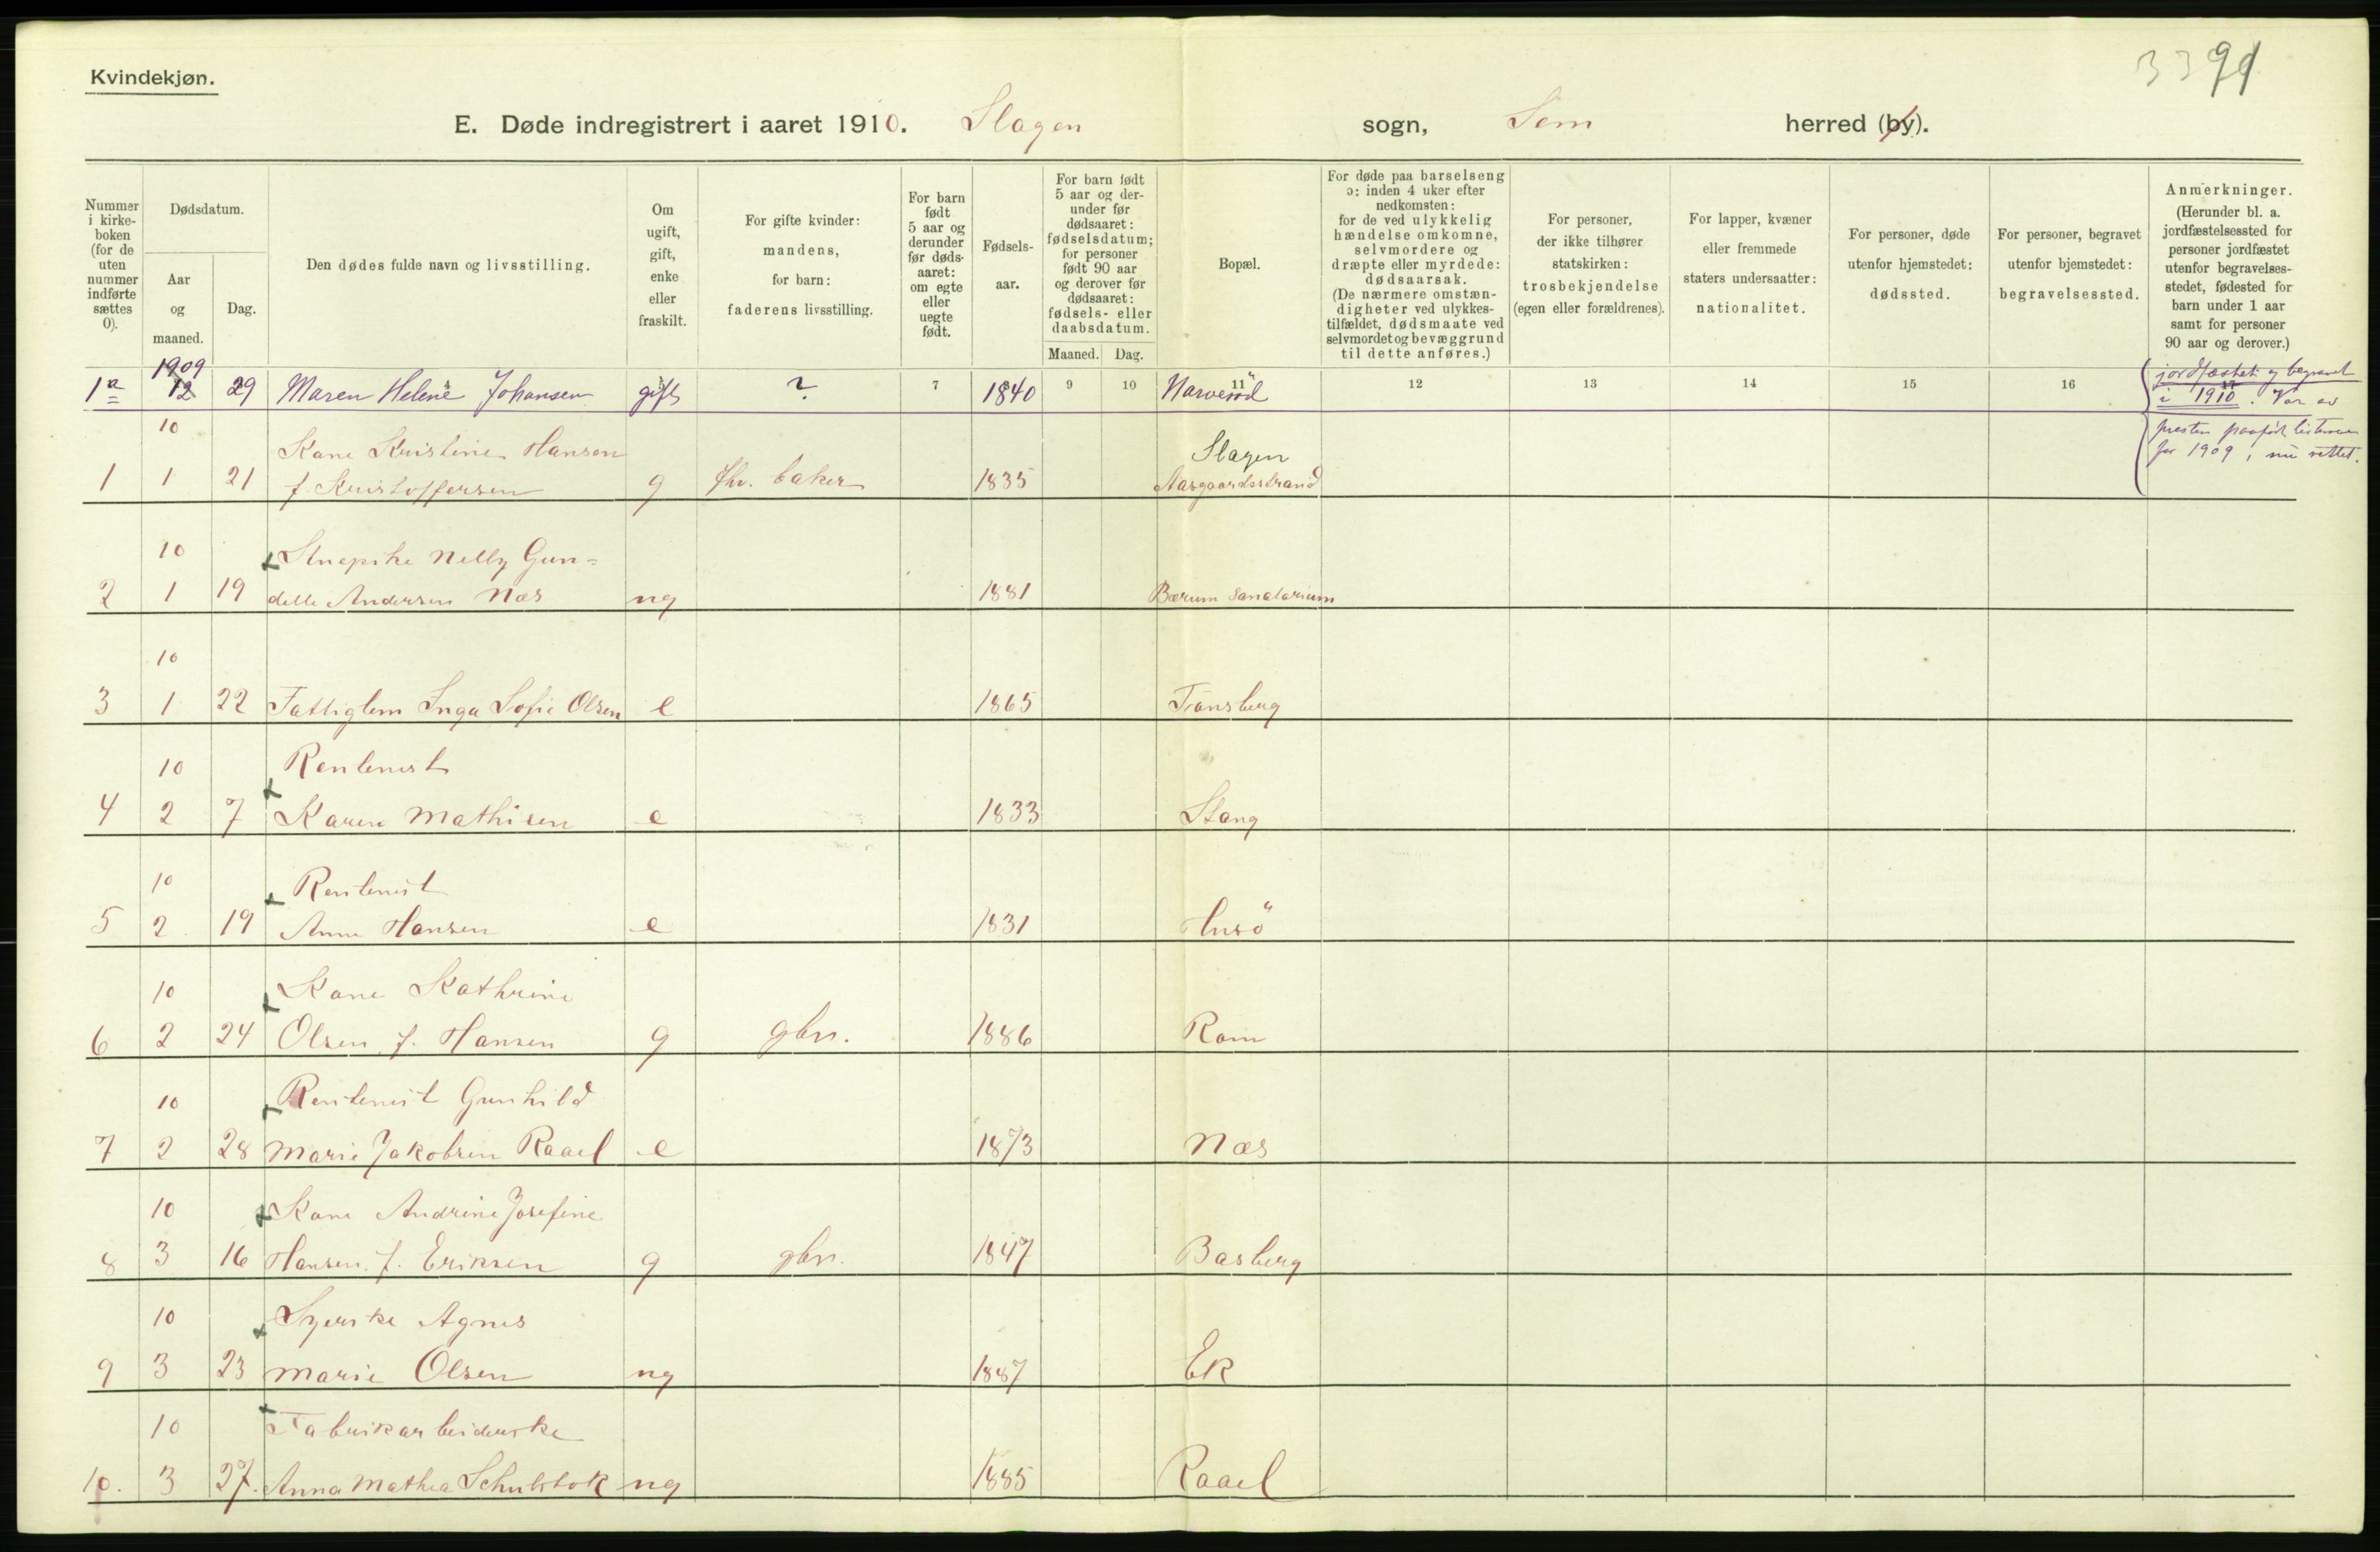 3391
Kvindekjøn.
E. Døde indregistrert i aaret 1910. Slagen sogn, Sem herred (by).
Nummer i kirke-boken (for de uten nummer indførte sættes 0).
Dødsdatum.
Aar og maaned.
Dag.
Den dødes fulde navn og livsstilling.
Om ugift, gift, enke eller fraskilt.
For gifte kvinder: mandens, for barn: faderens livsstilling.
For barn født 5 aar og derunder før døds-aaret: om egte eller uegte født.
Fødsels-aar.
For barn født 5 aar og der-under før dødsaaret: fødselsdatum; for personer født 90 aar og derover før dødsaaret: fødsels- eller daabsdatum.
Maaned. Dag.
Bopæl.
For døde paa barselseng ɔ: inden 4 uker efter nedkomsten: for de ved ulykkelig hændelse omkomne, selvmordere og dræpte eller myrdede: dødsaarsak. (De nærmere omstæn-digheter ved ulykkes-tilfældet, dødsmaate ved selvmordet og bevæggrund til dette anføres.)
For personer, der ikke tilhører statskirken: trosbekjendelse (egen eller forældrenes).
For lapper, kvæner eller fremmede staters undersaatter: nationalitet.
For personer, døde utenfor hjemstedet: dødssted.
For personer, begravet utenfor hjemstedet: begravelsessted.
Anmerkninger. (Herunder bl. a. jordfæstelsessted for personer jordfæstet utenfor begravelses-stedet, fødested for barn under 1 aar samt for personer 90 aar og derover.)
7 9 10 11 12 13 14 15 16 17
1909
1a 12 29 Maren Helene Johansen gift ? 1840 Narverød
jordfæstet og begravet
i 1910. Var av
presten paaført listerne
for 1909, nu rettet.
10 Kone Kristine Hansen Slagen
1 1 21 f. Kristoffersen g fhv. baker 1835 Aasgaardsstrand
10 Nelly Gun=
2 1 19 delle Andersen Næs ug 1881 Bærum Sanatorium
10
3 1 22 Fattiglem Inga Sofie Olsen e 1865 Tönsberg
10 Rentenist
4 2 7 Karen Mathisen e 1833 Stang
10 Rentenist
5 2 19 Anne Hansen e 1831 Husö
10 Kone Kathrine
6 2 24 Olsen f. Hansen g gbr. 1886 Rom
10 Rentenist Gunhild
7 2 28 Marie Jakobsen Raael e 1873 Næs
10 Kone Andrine Josefine
8 3 16 Hansen f. Eriksen g gbr. 1847 Basberg
10 Syerske Agnes
9 3 23 Marie Olsen ug 1887 Ek
10 Fabrikarbeiderske
10. 3 27. Anna Mathea Schulstok ug 1885 Raael